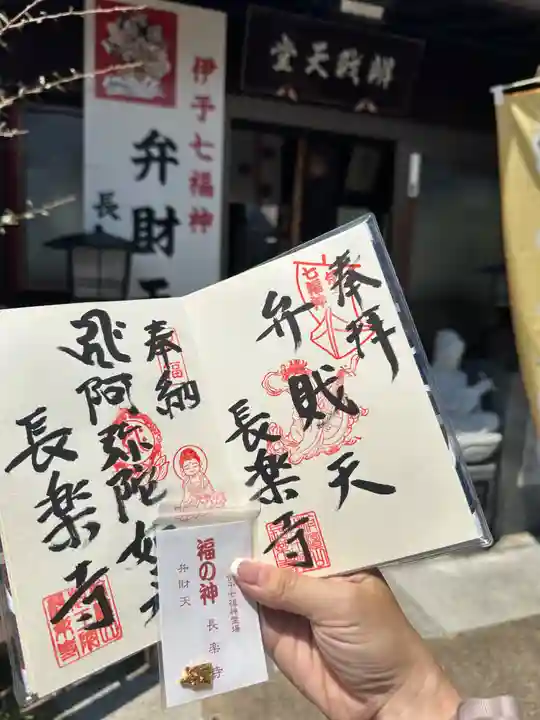 伊予七福神
弁財天
長
辨戝天堂
奉拝
七福神
弁戝天
長楽寺
奉納
福
阿弥陀如来
長楽寺
伊予七福神霊場
福の神
長楽寺
弁財天